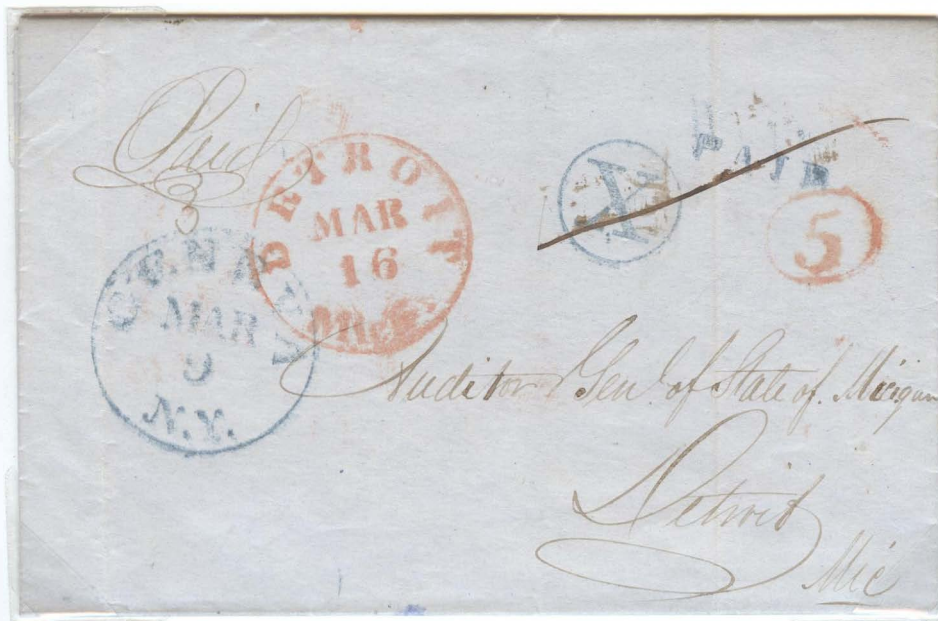 Paid
3
DETROIT
MAR
16
Mich.
GENEVA
MAR
9
N.Y.
X
PAID
5
Auditor Genl. of State of. Micigan
Detroit
Mic